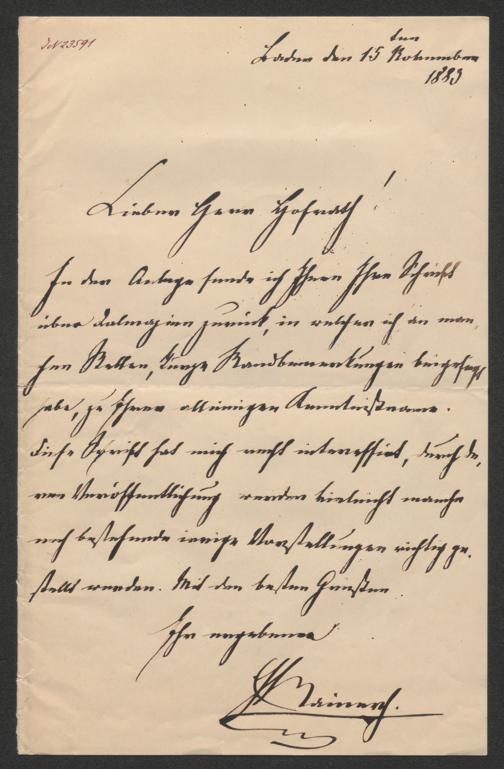 JN 23591
Baden den 15ten November
1883
Lieber Herr Hofrath!
In der Anlage sende ich Ihnen Ihre Schrift
über Dalmazien zurück, in welcher ich an man-
chen Stellen, kurze Randbemerkungen beigefügt
habe, zu Ihrer alleinigen Kenntnißname.
Diese Schrift hat mich recht interessirt, durch de-
ren Veröffentlichung werden vieleicht manche
noch bestehende irrige Vorstellungen richtig ge-
stellt werden. Mit den besten Grüssen
Ihr ergebener
Rainer